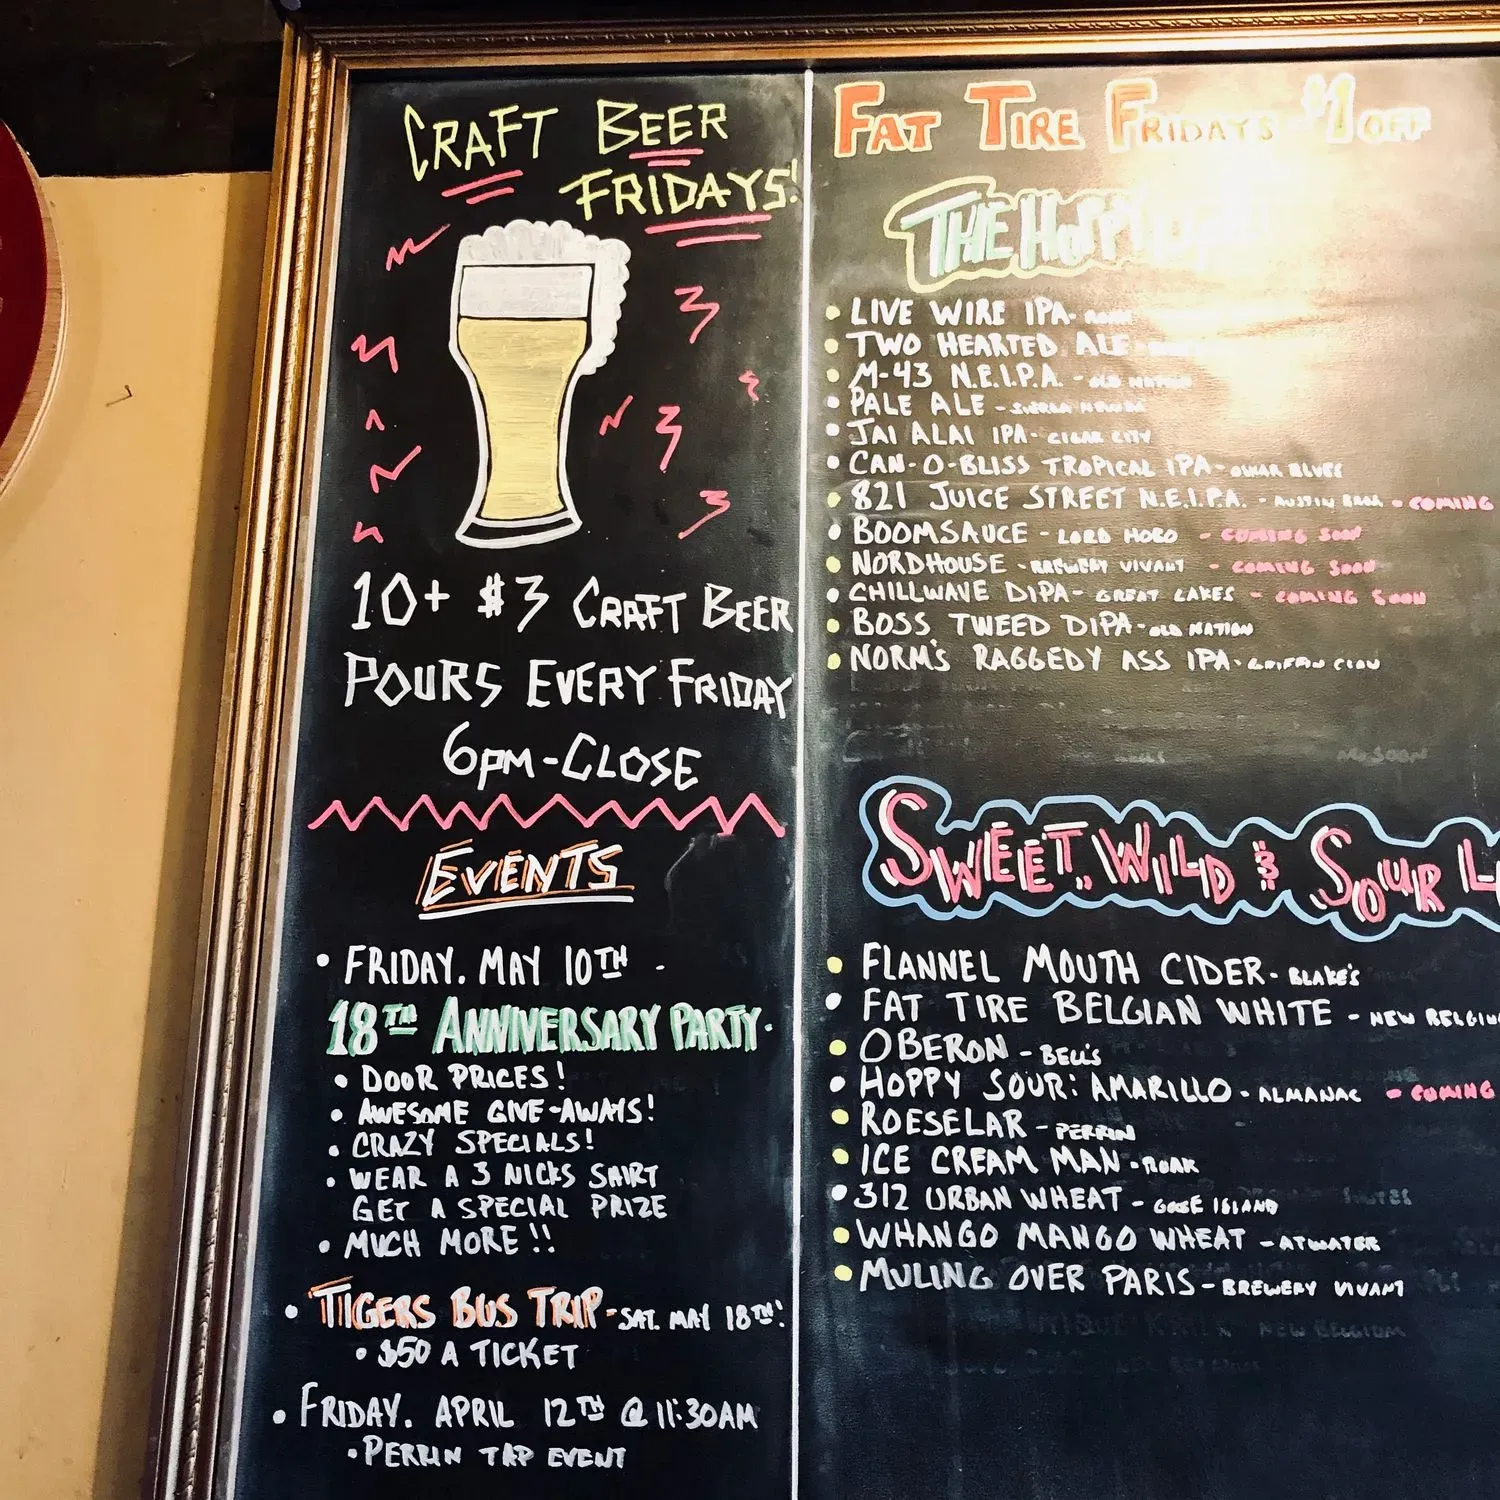 CRAFT BEER
FRIDAYS!
10+ $3 CRAFT BEER
POURS EVERY FRIDAY
6PM-CLOSE
EVENTS
• FRIDAY. MAY 10TH -
18TH ANNIVERSARY PARTY.
• DOOR PRICES!
• AWESOME GIVE-AWAYS!
• CRAZY SPECIALS!
• WEAR A 3 NICKS SHIRT
GET A SPECIAL PRIZE
• MUCH MORE!!
• TIGERS BUS TRIP - SAT. MAY 18TH!
• $50 A TICKET
• FRIDAY. APRIL 12TH @ 11:30AM
• PERRIN TAP EVENT
FAT TIRE FRIDAYS $1 OFF
THE HOPPY
• LIVE WIRE IPA -
• TWO HEARTED ALE -
• M-43 N.E.I.P.A. - OLD NATION
• PALE ALE - SIERRA NEVADA
• JAI ALAI IPA - CIGAR CITY
• CAN-O-BLISS TROPICAL IPA - OSKAR BLUES
• 821 JUICE STREET N.E.I.P.A. - AUSTIN BROS. - COMING
• BOOMSAUCE - LORD HOBO - COMING SOON
• NORDHOUSE - BREWERY VIVANT - COMING SOON
• CHILLWAVE DIPA - GREAT LAKES - COMING SOON
• BOSS TWEED DIPA - OLD NATION
• NORM'S RAGGEDY ASS IPA - GRIFFIN CLAW
SWEET, WILD & SOUR
• FLANNEL MOUTH CIDER - BLAKE'S
• FAT TIRE BELGIAN WHITE - NEW BELGIUM
• OBERON - BELL'S
• HOPPY SOUR: AMARILLO - ALMANAC - COMING
• ROESELAR - PERRIN
• ICE CREAM MAN - ROAK
• 312 URBAN WHEAT - GOOSE ISLAND
• WHANGO MANGO WHEAT - ATWATER
• MULING OVER PARIS - BREWERY VIVANT